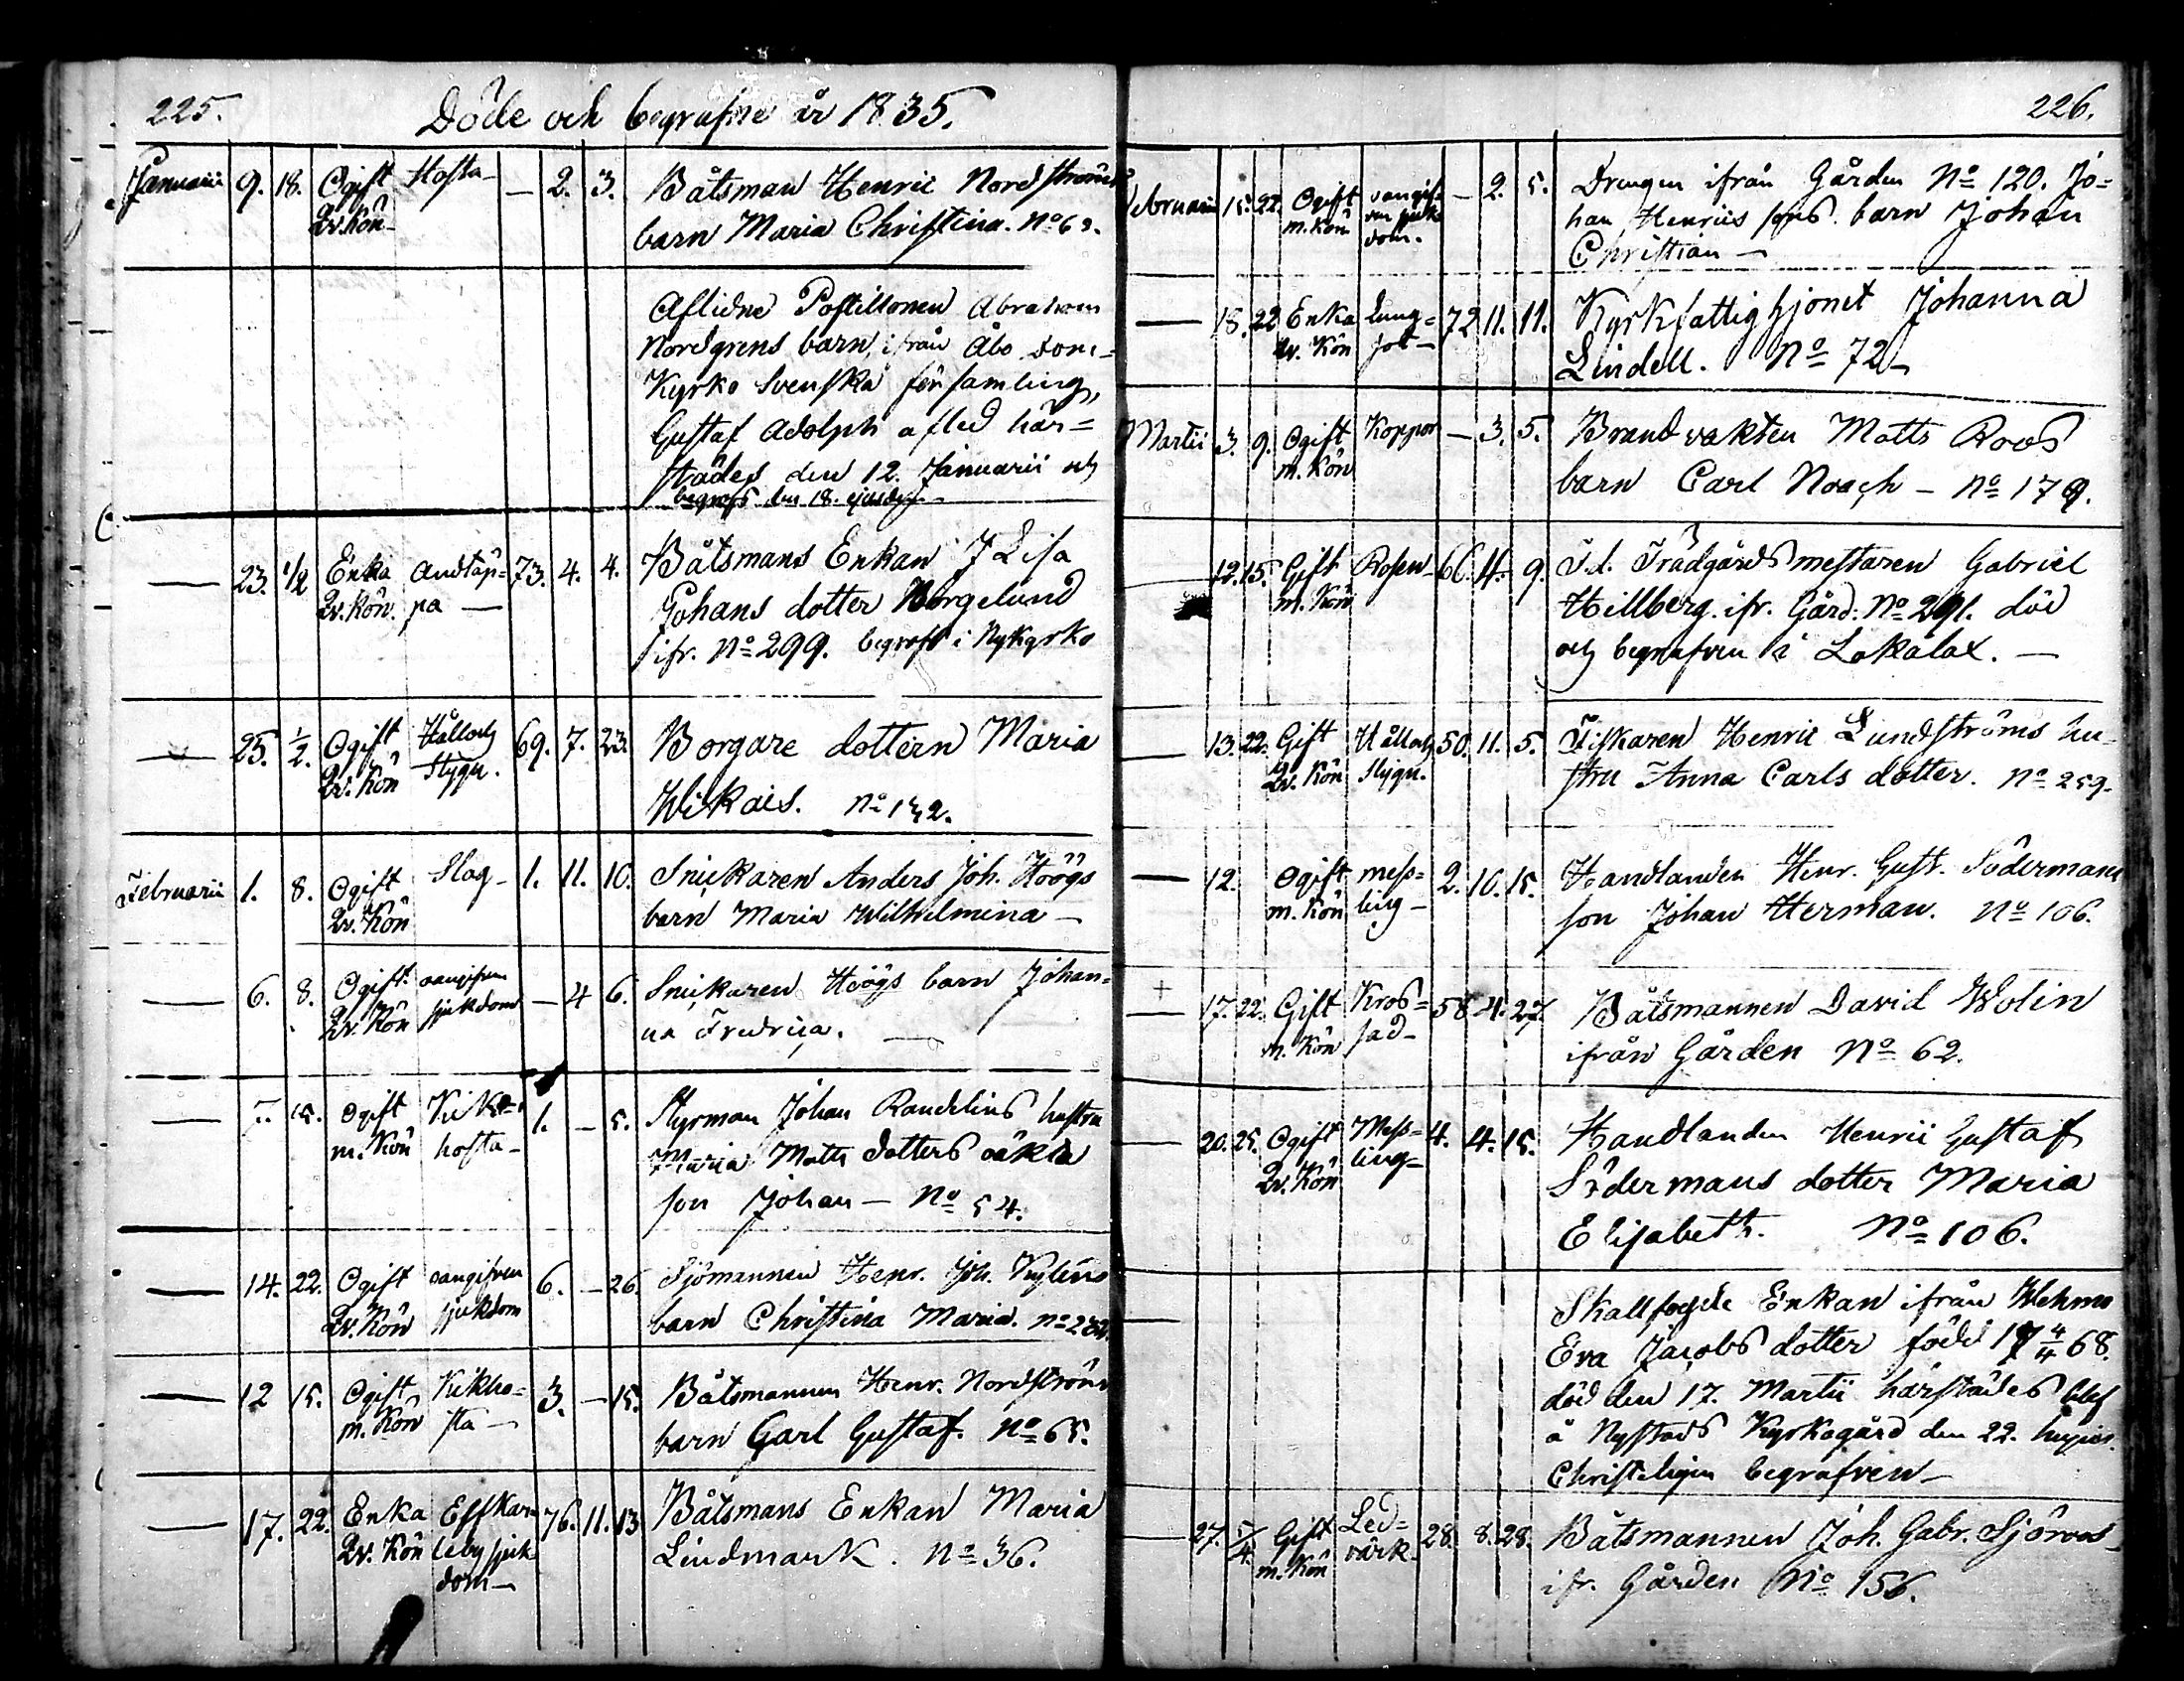 225.
Döde och begrafne år 1835.
Januarii 9. 18. Ogift Hosta — 2. 3. Båtsman Henric Nordströms
Qv. Kön barn Maria Christina. No
Aflidne Postillonen Abraham
Nordgrens barn, ifrån Åbo Dom-
Kyrko Svenska församling,
Gustaf Adolph afled här-
städes den 12. Januarii och
begrofs den 18. ejusdem
— 23. 1/2 Enka Andtäp- 73. 4. 4. Båtsmans Enkan Lisa
Qv. Kön. pa — Johans dotter Borgelund
ifr. No 299. begrofs i Nykyrko
— 25. 1/2. Ogift Håll och 69. 7. 23. Borgare dottern Maria
Qv. Kön Stygn. Wikais. No 132.
Februarii 1. 8. Ogift Slag 1. 11. 10. Snickaren Anders Joh. Höögs
Qv. Kön barn Maria Wilhelmina —
— 6. 8. Ogift oangifven — 4 6. Snickaren Höögs barn Johan-
Qv. Kön sjukdom na Fredrica. —
— 7. 15. Ogift Kik- 1. — 5. Styrman Johan Randelins hustru
m. Kön hosta Maria Matts dotters oäkta
son Johan — No 54.
— 14. 22. Ogift oangifven 6. — 26. Sjömannen Henr. Joh.
Qv. Kön sjukdom barn Christina Maria. No
— 12 15. Ogift Kikho- 3. — 15. Båtsmannen Henr. Nordströms
m. Kön sta — barn Carl Gustaf. No 65.
— 17. 22. Enka 76. 11. 13 Båtsmans Enkan Maria
Qv. Kön sjuk Lindmark. No 36.
dom —
226.
Februarii 15. 22. Ogift oangif- — 2. 5. Drengen ifrån Gården No 120. Jo-
m. Kön ven sjuk han Henrics sons barn Johan
dom. Christian —
— 18. 22 Enka Lung- 72 11. 11. Kyrkfattighjonet Johanna
Qv. Kön sot — Lindell. No 72
Martii 3. 9. Ogift Koppor — 3. 5. Brandvakten Matts Roos
m. Kön barn Carl Noach — No 179.
12. 15. Gift Rosen 66. 4. 9. F.d. Trädgårdsmästaren Gabriel
m. Kön Hillberg. ifr. Gård: No 291. död
och begrafven i Lokalax. —
— 13. 22. Gift Håll och 50. 11. 5. Fiskaren Henric Lundströms hu-
Qv. Kön Stygn. stru Anna Carls dotter. No 259.
— 12. Ogift mess- 2. 10. 15. Handlanden Henr. Gust. Södermans
m. Kön ling — son Johan Herman. No 106.
+
— 17. 22. Gift Kros- 58 4. 27. Båtsmannen David Wolin
m. Kön sad — ifrån Gården No 62.
— 20. 25. Ogift Mess- 4. 4. 15. Handlanden Henric Gustaf
Qv. Kön ling Södermans dotter Maria
Elisabeth. No 106.
— Skallfogde Enkan ifrån Wehmo
Eva Jacobs dotter född 17 4/4 68.
död den 17. Martii härstädes blef
å Nystads Kyrkogård den 22.
Christeligen begrafven —
— 27. 5/4. Gift Led- 28. 8. 28. Båtsmannen Joh. Gabr. Sjöroos
m. Kön värk ifr. Gården No 156.